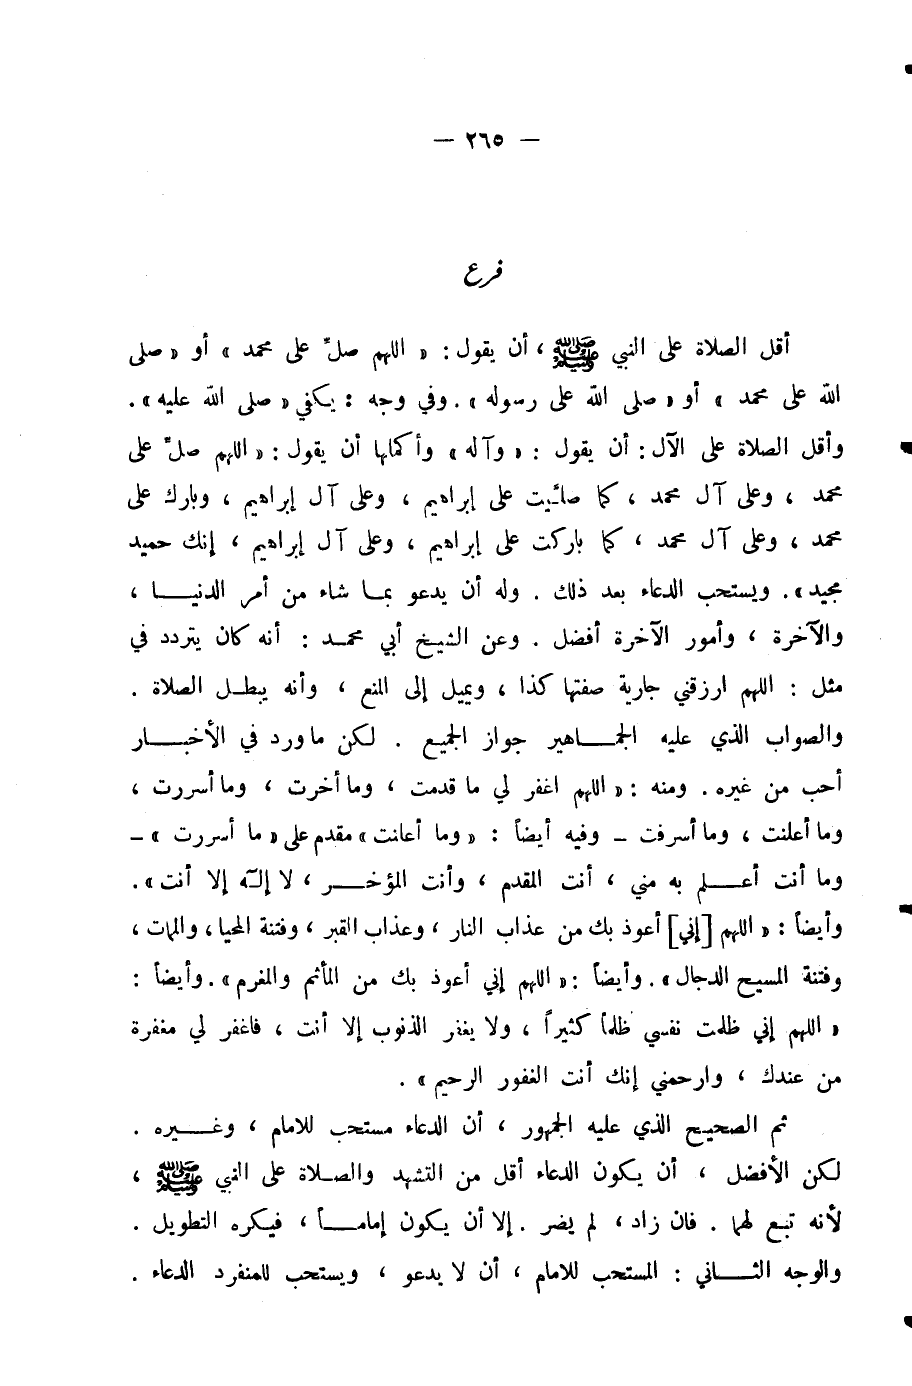 — ٢٦٥ —
فرع
أقل الصلاة على النبي ﷺ ، أن يقول : « اللهم صلِّ على محمد » أو « صلى
الله على محمد » أو « صلى الله على رسوله » . وفي وجه : يكفي « صلى الله عليه » .
وأقل الصلاة على الآل : أن يقول : « وآله » وأكملها أن يقول : « اللهم صلِّ على
محمد ، وعلى آل محمد ، كما صلَّيت على إبراهيم ، وعلى آل إبراهيم ، وبارك على
محمد ، وعلى آل محمد ، كما باركت على إبراهيم ، وعلى آل إبراهيم ، إنك حميد
مجيد » . ويستحب الدعاء بعد ذلك . وله أن يدعو بمـا شاء من أمر الدنيـــا ،
والآخرة ، وأمور الآخرة أفضل . وعن الشيخ أبي محمـد : أنه كان يتردد في
مثل : اللهم ارزقني جارية صفتها كذا ، ويميل إلى المنع ، وأنه يبطـل الصلاة .
والصواب الذي عليه الجمـــاهير جواز الجميع . لكن ما ورد في الأخبـــار
أحب من غيره . ومنه : « اللهم اغفر لي ما قدمت ، وما أخرت ، وما أسررت ،
وما أعلنت ، وما أسرفت – وفيه أيضاً : « وما أعلنت » مقدم على « ما أسررت » –
وما أنت أعـــلم به مني ، أنت المقدم ، وأنت المؤخـــر ، لا إلـٰه إلا أنت » .
وأيضاً : « اللهم [إني] أعوذ بك من عذاب النار ، وعذاب القبر ، وفتنة المحيا ، والمات ،
وفتنة المسيح الدجال » . وأيضاً : « اللهم إني أعوذ بك من المأثم والمغرم » . وأيضاً :
« اللهم إني ظلمت نفسي ظلماً كثيراً ، ولا يغفر الذنوب إلا أنت ، فاغفر لي مغفرة
من عندك ، وارحمني إنك أنت الغفور الرحيم » .
ثم الصحيح الذي عليه الجمهور ، أن الدعاء مستحب للامام ، وغـــيره .
لكن الأفضل ، أن يكون الدعاء أقل من التشهد والصـلاة على النبي ﷺ ،
لأنه تبع لهما . فان زاد ، لم يضر . إلا أن يكون إمامـــاً ، فيكره التطويل .
والوجه الثـــاني : المستحب للامام ، أن لا يدعو ، ويستحب للمنفرد الدعاء .